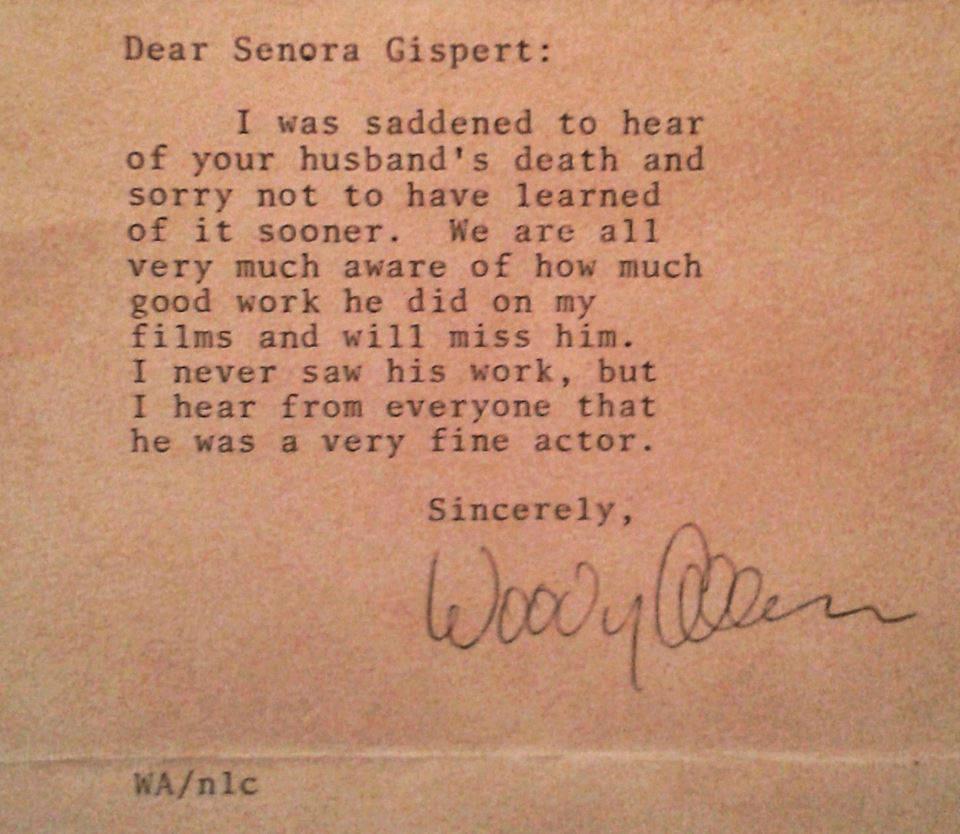 Dear Senora Gispert:
I was saddened to hear
of your husband's death and
sorry not to have learned
of it sooner. We are all
very much aware of how much
good work he did on my
films and will miss him.
I never saw his work, but
I hear from everyone that
he was a very fine actor.
Sincerely,
Woody Allen
WA/nlc